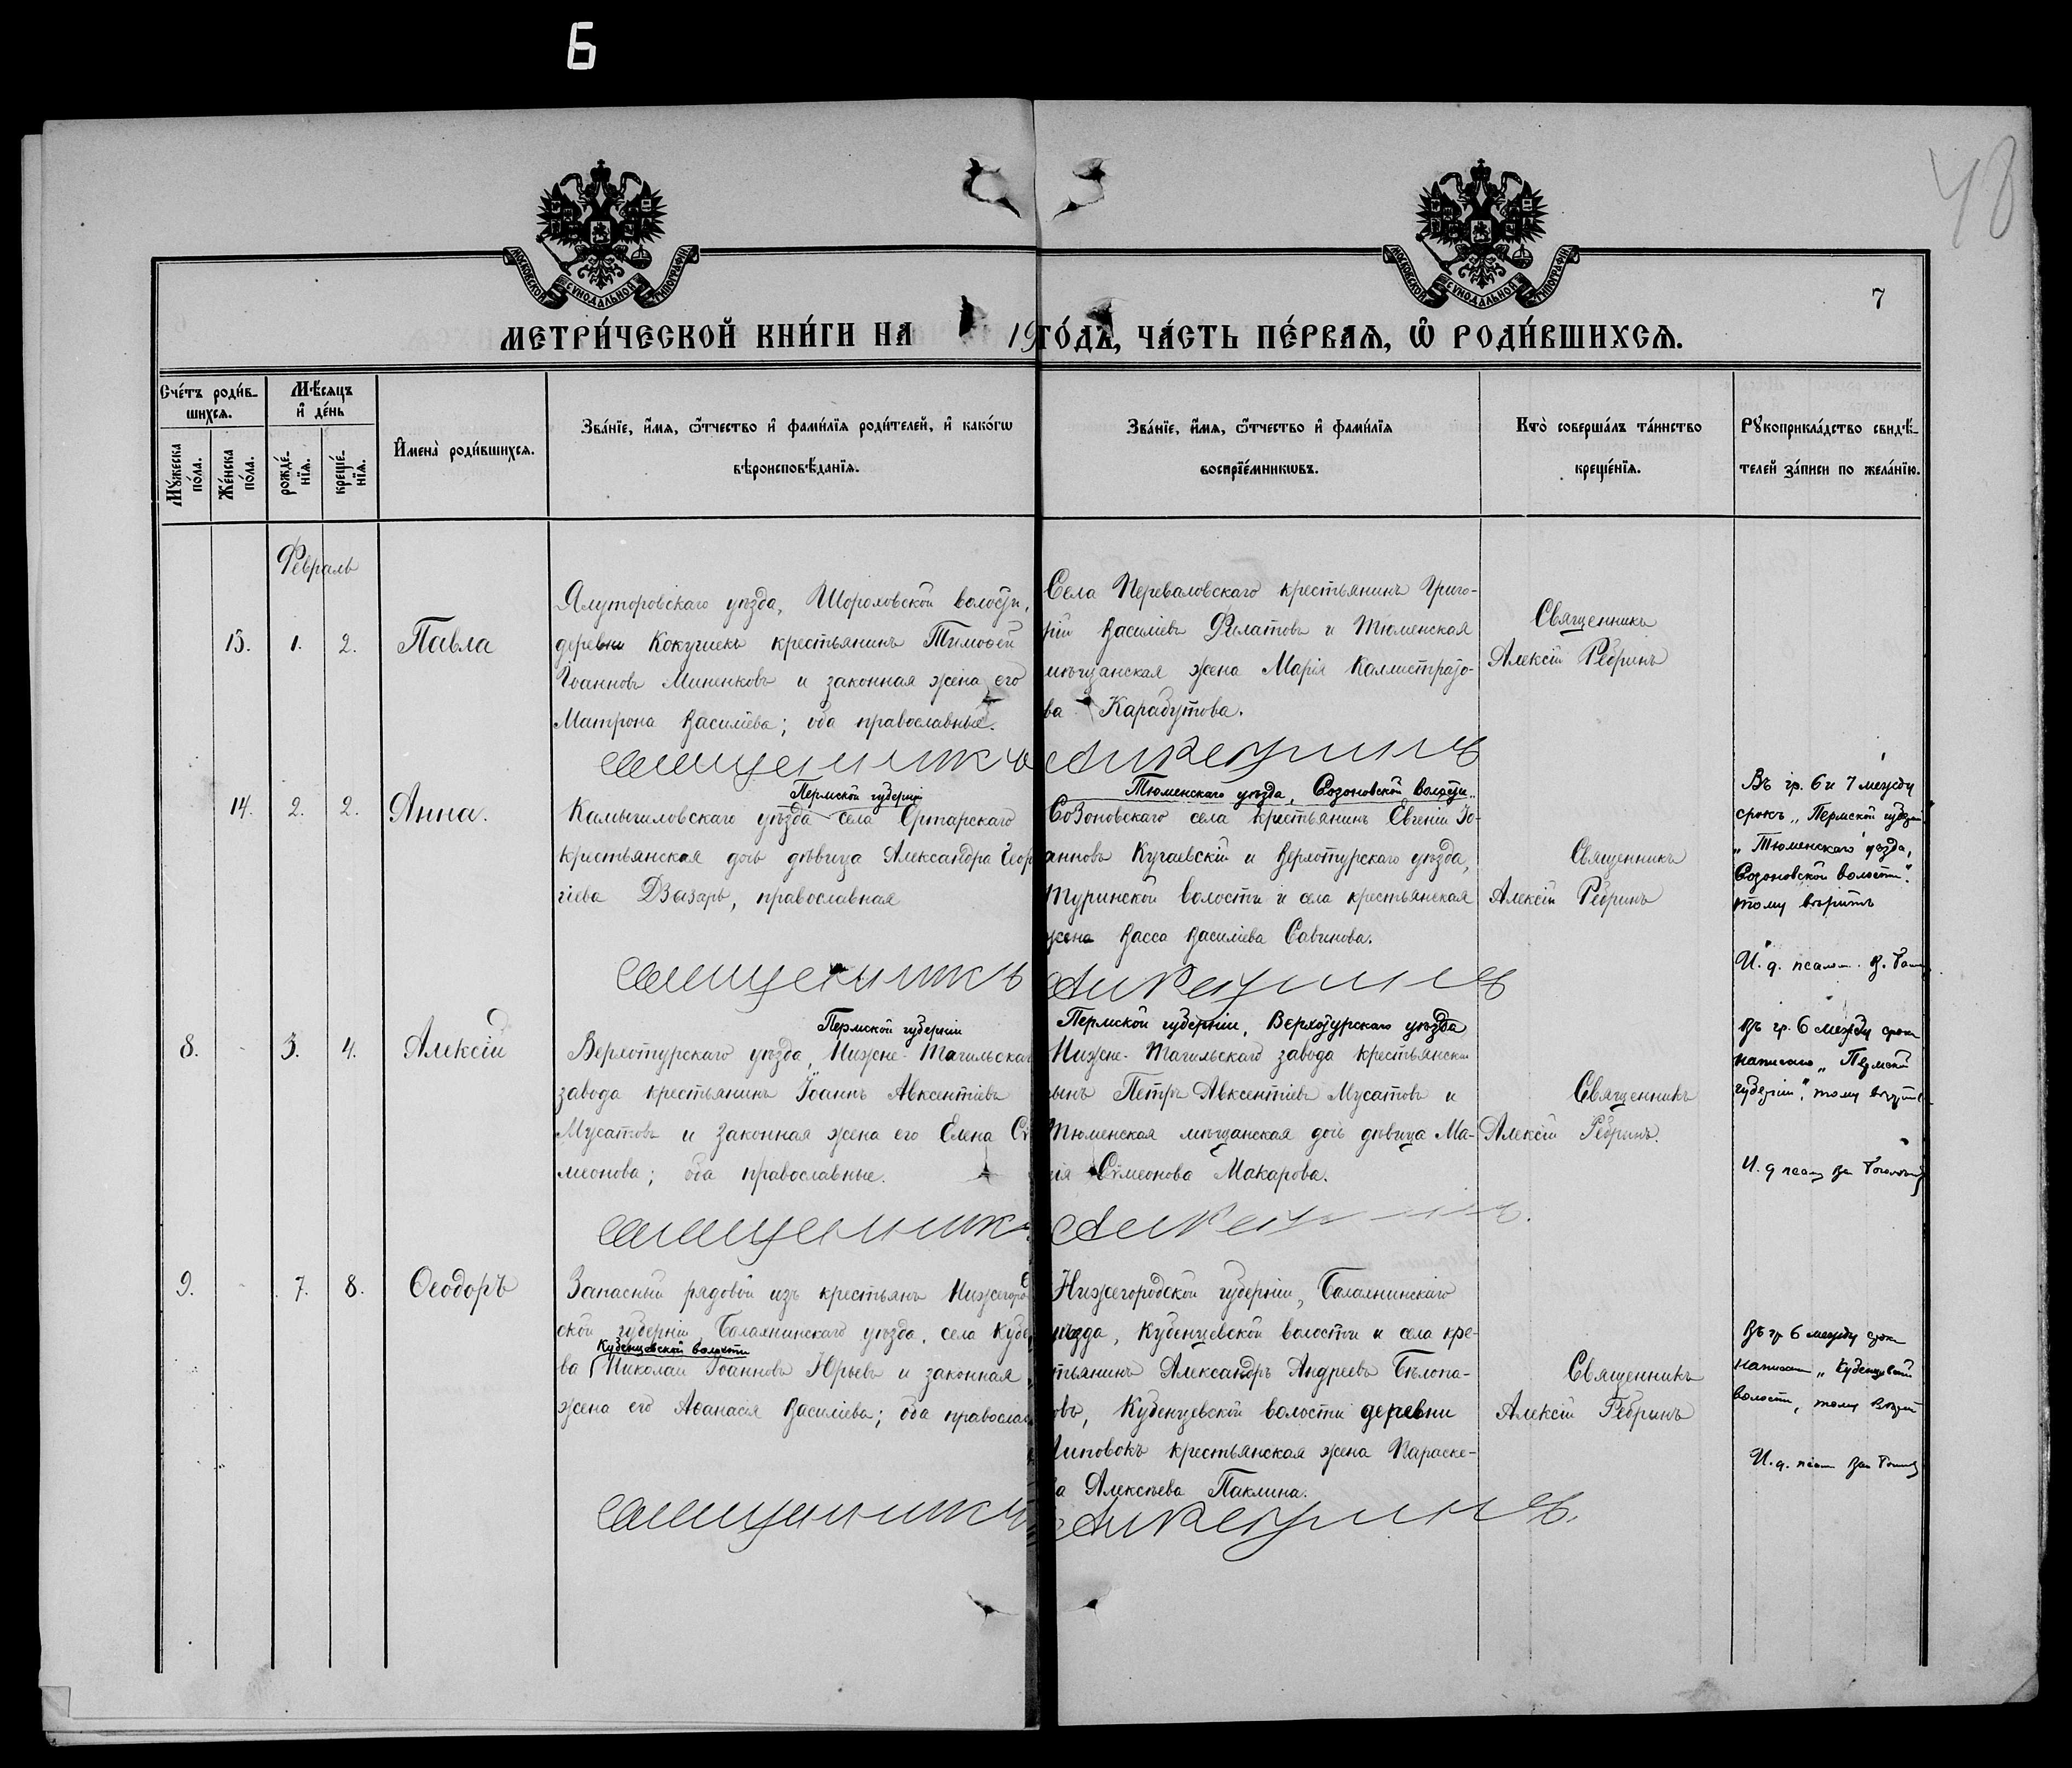 Б
48
МОСКОВСКОЙ СѴНОДАЛЬНОЙ ТИПОГРАФІИ
МОСКОВСКОЙ СѴНОДАЛЬНОЙ ТИПОГРАФІИ
7
МЕТРИ́ЧЕСКОЙ КНИ́ГИ НА 19 ГО́ДЪ, ЧА́СТЬ ПЕ́РВАѦ, Ѽ РОДИ́ВШИХСѦ.
Сче́тъ роди́в-
шихсѧ.
Мꙋ́жеска по́ла.
Же́нска по́ла.
Мѣ́сѧцъ
и҆ де́нь
рожде́-
нїѧ.
креще́-
нїѧ.
И҆мена̀ роди́вшихсѧ.
Зва́нїе, и҆́мѧ, ѻ҆́тчество и҆ фами́лїѧ роди́телей, и҆ како́гѡ
вѣроисповѣ́данїѧ.
Зва́нїе, и҆́мѧ, ѻ҆́тчество и҆ фами́лїѧ
воспрїе́мникѡвъ.
Кто̀ соверша́лъ та́инство
креще́нїѧ.
Рꙋкоприкла́дство свидѣ́-
телей за́писи по жела́нїю.
Февраль
13. 1. 2. Павла
Ялуторовскаго уѣзда, Шороховской волости,
деревни Кокушекъ крестьянинъ Тимоѳей
Іоанновъ Миненковъ и законная жена его
Матрона Василіева; оба православные.
Села Переваловскаго крестьянинъ Григо-
рій Василіевъ Филатовъ и Тюменская
мѣщанская жена Марія Каллистрато-
ва Карабутова.
Священникъ
Алексій Ребринъ
Священникъ А Ребринъ
14. 2. 2. Анна.
Пермской губерніи
Камышловскаго уѣзда села Ертарскаго
крестьянская дочь дѣвица Александра Геор
гіева Дзызарь, православная
Тюменскаго уѣзда, Созоновской волости
Созоновскаго села крестьянинъ Евгеній Іо-
анновъ Кугаевскій и Верхотурскаго уѣзда,
Туринской волости и села крестьянская
жена Васса Василіева Савинова.
Священникъ
Алексій Ребринъ
Въ гр. 6 и 7 между
срокъ „Пермской губерніи
„Тюменскаго уѣзда,
Созоновской волости".
тому вѣрить
И. д. псалом. В.
Священникъ А Ребринъ
8. - 3. 4. Алексій
Пермской губерніи
Верхотурскаго уѣзда, Нижне-Тагильскаго
завода крестьянинъ Іоаннъ Авксентіевъ
Мусатовъ и законная жена его Елена Сѵ
меонова; оба православные.
Пермской губерніи, Верхотурскаго уѣзда
Нижне-Тагильскаго завода крестьянскій
сынъ Петръ Авксентіевъ Мусатовъ и
Тюменская мѣщанская дочь дѣвица Ма-
рія Сѵмеонова Макарова.
Священникъ
Алексій Ребринъ.
Въ гр. 6 между срок
написано „Пермской
губерніи", тому вѣрить
И. д псал
Священникъ А Ребринъ.
9. - 7. 8. Ѳеодоръ
Запасный рядовой изъ крестьянъ Нижегород
ской губерніи, Балахнинскаго уѣзда, села Кубен
Кубенцевской волости
ва Николай Іоанновъ Юрьевъ и законная
жена его Аѳанасія Василіева; оба православ
Нижегородской губерніи, Балахнинскаго
уѣзда, Кубенцевской волости и села кре-
стьянинъ Александръ Андреевъ Бѣлопа-
овъ, Кубенцевской волости деревни
Липовокъ крестьянская жена Параске-
ва Алексѣева Паклина.
Священникъ
Алексій Ребринъ
Въ гр 6 между срок
написано „Кубенцевской
волости, тому вѣрить
И. д. псал
Священникъ А Ребринъ.